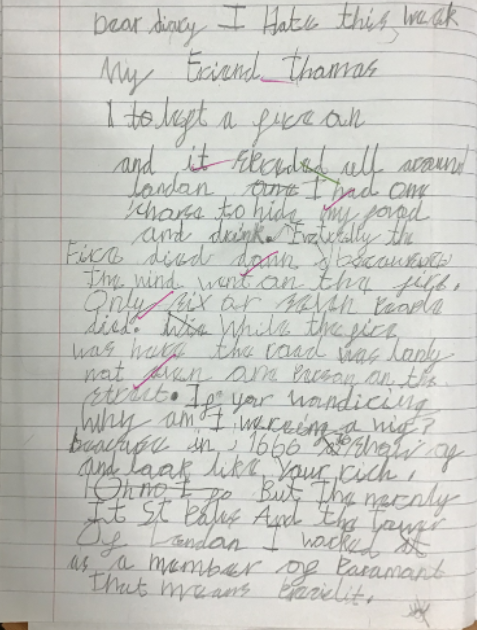 Dear diary I Hate this week
My Friend Thomas
I to kept a fire on
and it Spreded all around
london and I had one
chanse to hide my food
and drink. Evetually the
Fire died down because
the wind went on the fire.
Only six or seven people
died. While the fire
was here the road was lonly
not even one person on the
street. If your wondering
Why am I wereing a wig?
because in 1666 to show of
and look like your rich.
Oh no I go But The nernly
It St Pales And the Tower
Of London I worked at
as a member of Paramant
that means